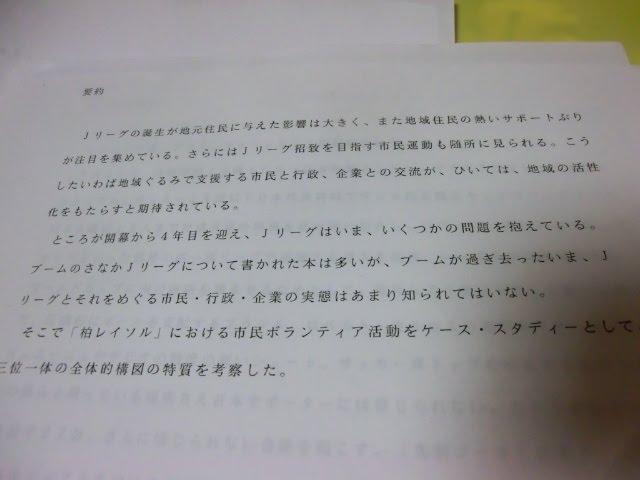 要約
Jリーグの誕生が地元住民に与えた影響は大きく、また地域住民の熱いサポートぶり
が注目を集めている。さらにはJリーグ招致を目指す市民運動も随所に見られる。こう
したいわば地域ぐるみで支援する市民と行政、企業との交流が、ひいては、地域の活性
化をもたらすと期待されている。
ところが開幕から4年目を迎え、Jリーグはいま、いくつかの問題を抱えている。
ブームのさなかJリーグについて書かれた本は多いが、ブームが過ぎ去ったいま、J
リーグとそれをめぐる市民・行政・企業の実態はあまり知られてはいない。
そこで「柏レイソル」における市民ボランティア活動をケース・スタディーとして、
三位一体の全体的構図の特質を考察した。